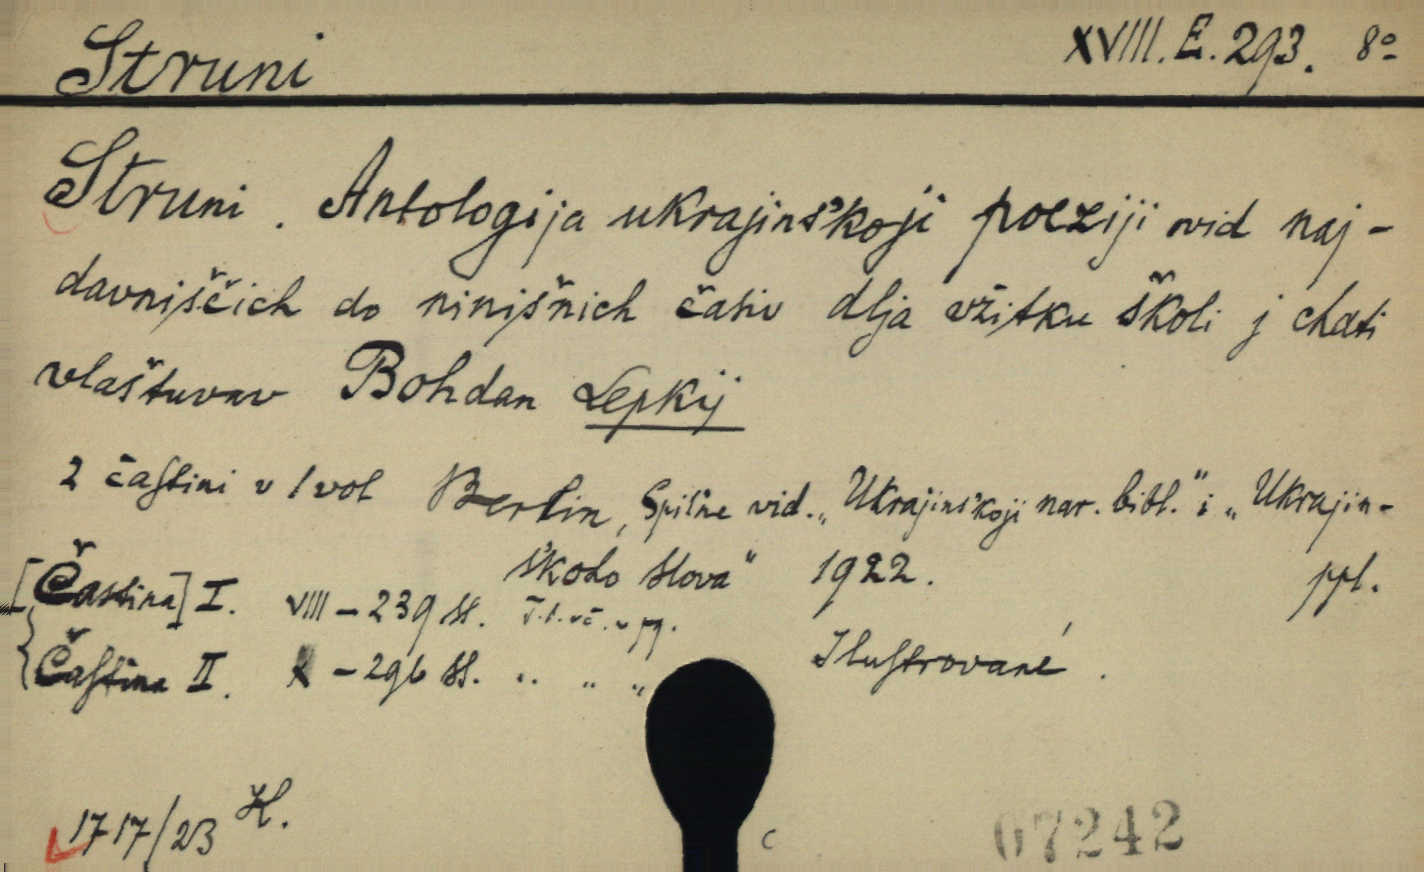 Struni XVIII. E. 293. 8°
Struni. Antologija ukrajinśkoji poeziji vid naj-
davniščich do ninišnich časiv dlja vžitku školi j chati
vlaštuvav Bohdan Lepkij
2 častini v 1 vol Berlin, Spilne vid. „Ukrajinśkoji nar. bibl." i „Ukrajin-
[Častina] I. VIII – 239 ss. škoho slova" 1922. ppl.
Častina II. X – 296 ss. „ „ „ Ilustrované.
1717/23 K.
C 07242